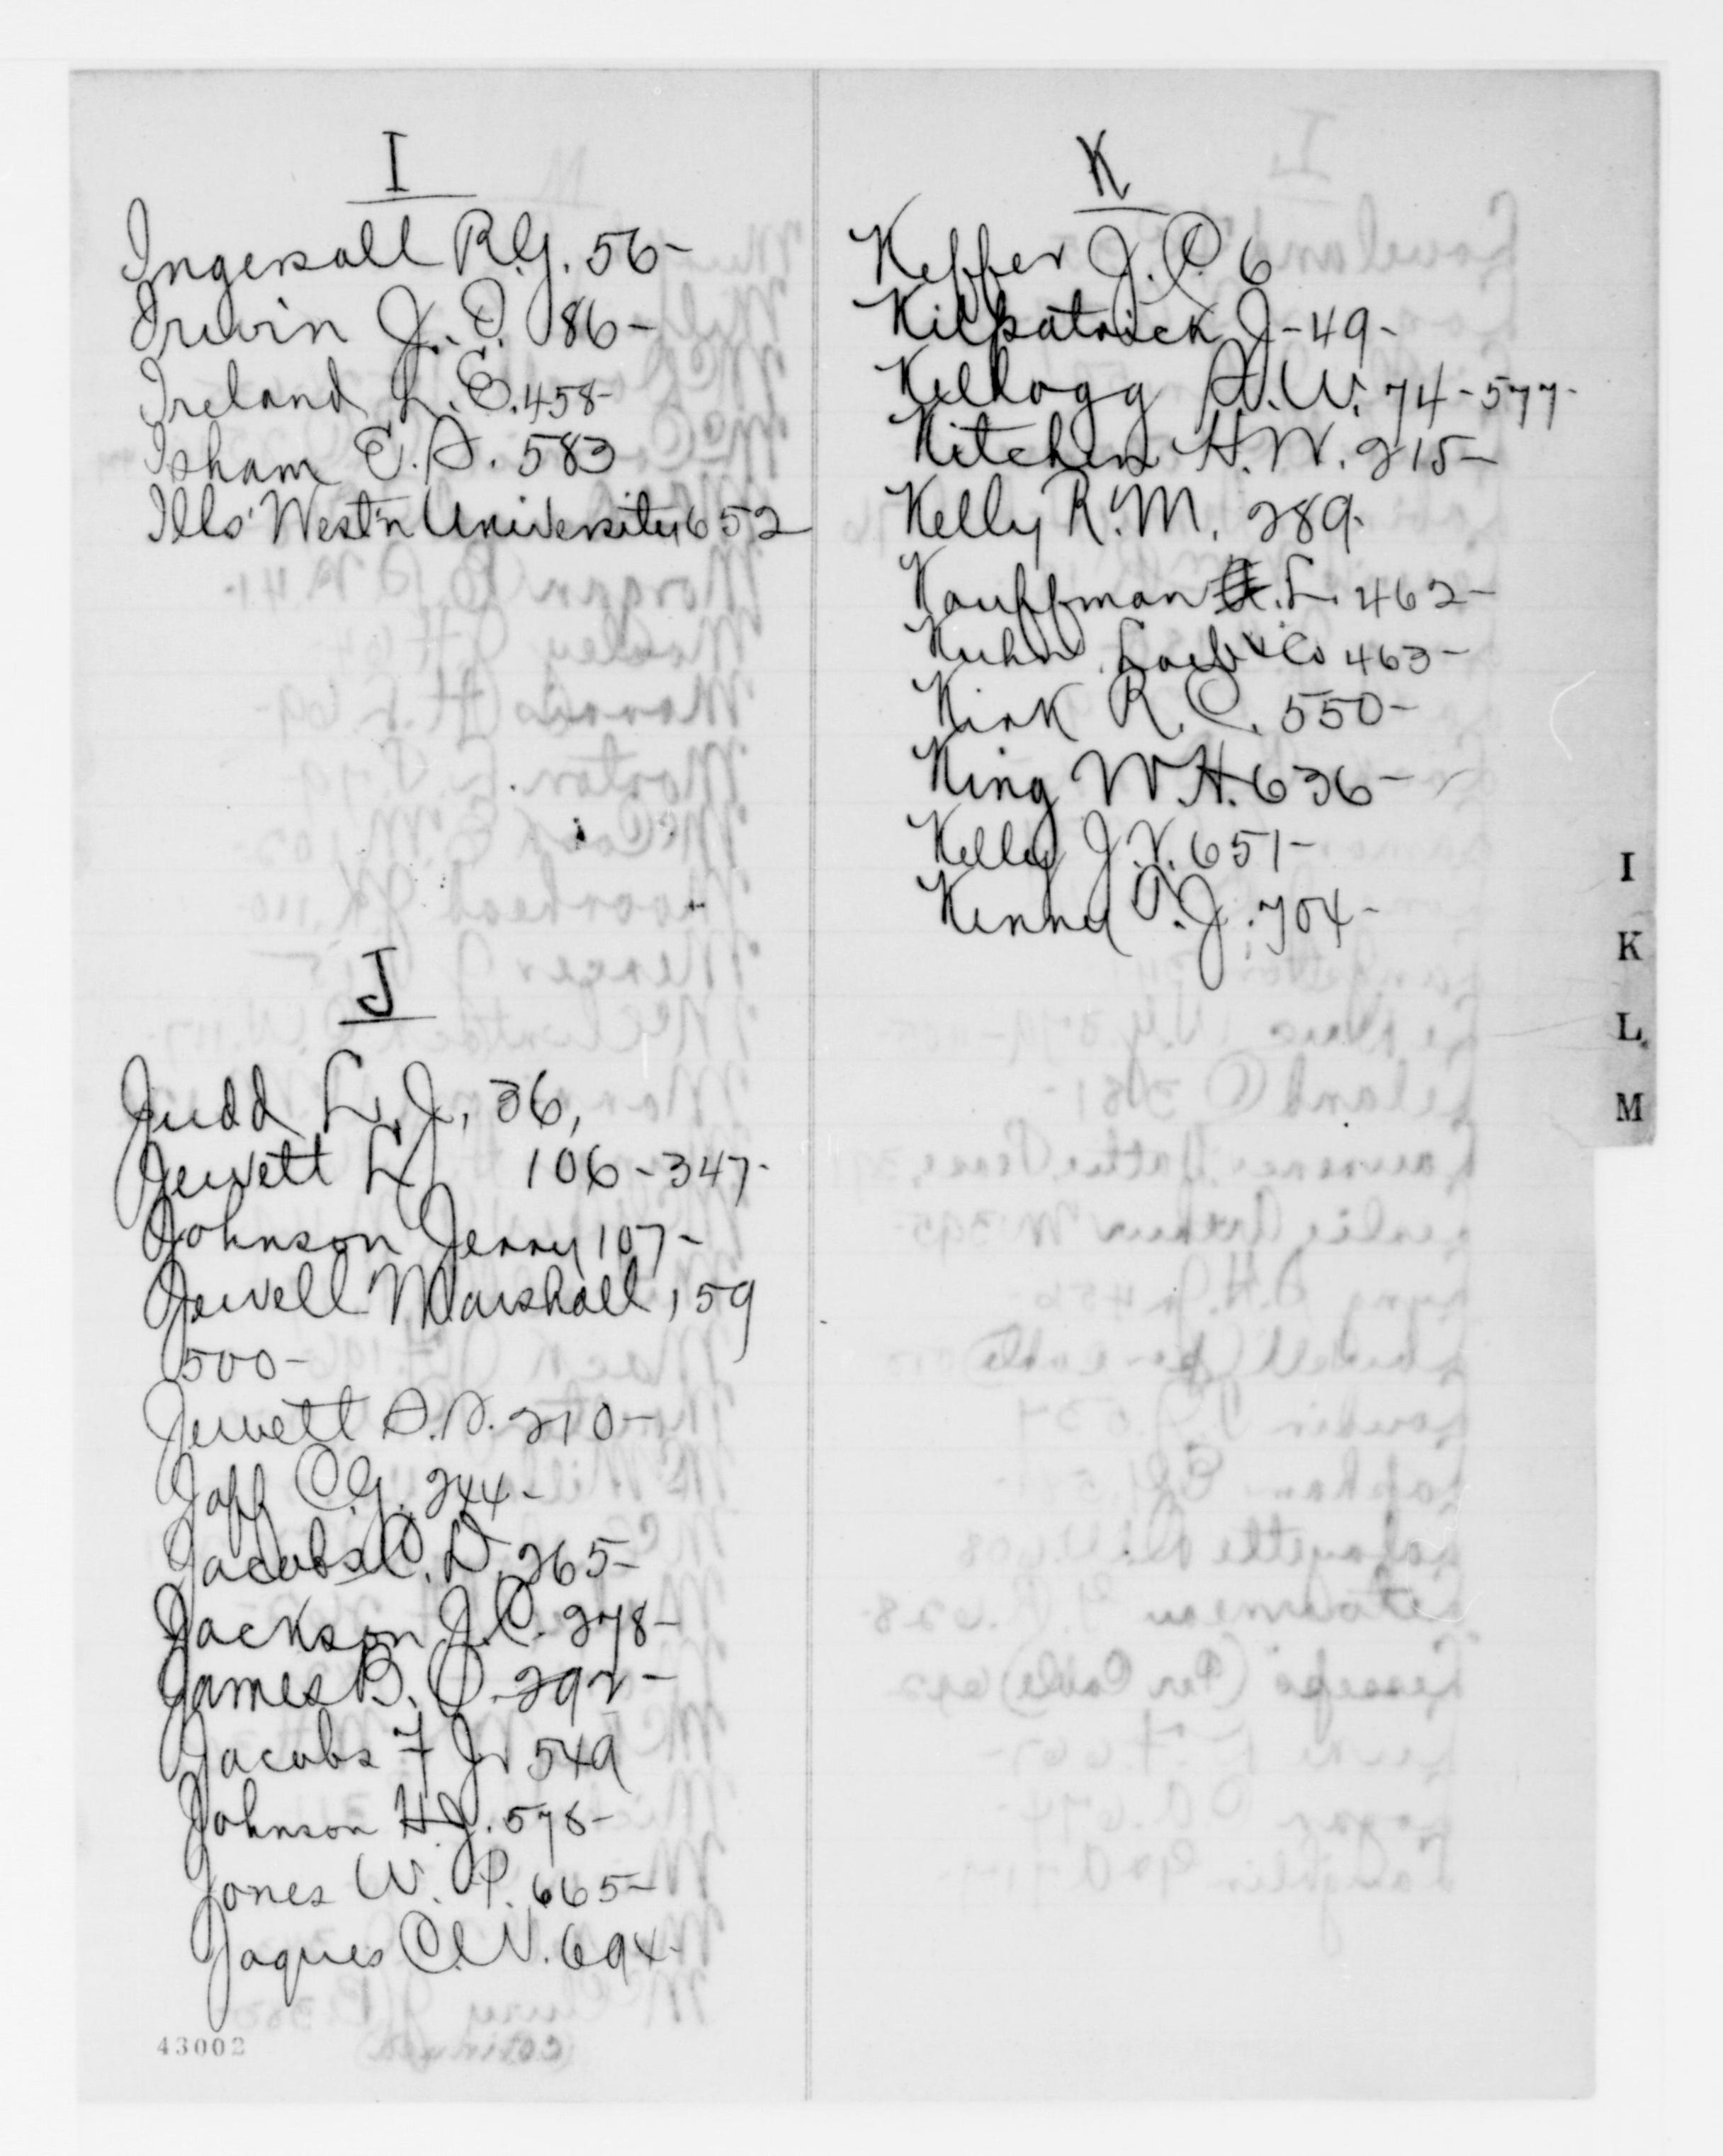 I
Ingersoll R.G. 56-
Irwin J. D. 86-
Ireland L. E. 458-
Isham E. S. 583
Ills' West'n University 652
J
Judd L. J, 36,
Jewett L 106-347-
Johnson Jerry 107-
Jewell Marshall, 59
500-
Jewett S. A. 210-
Joff C.G. 244-
Jacobs C. D. 265-
Jackson J. C. 278-
James B. O. 292-
Jacobs F Jr 549
Johnson H. J. 578-
Jones W. P. 665-
Jaques C.W. 694-
43002
K
Keffer J. C. 6
Kilpatrick J-49-
Kellogg A. W. 74-577-
Kitchen H. W. 215-
Kelly R. M. 289-
Kauffman L. 462-
Kuhn Loeb & Co 463-
Kirk R. C. 550-
King W. H. 636-
Kelly J. V. 651-
Kenney T. J. 704-
I
K
L
M